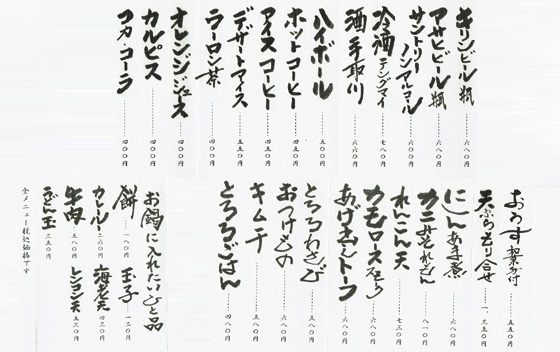 キリンビール 瓶 ……… 六八〇円
アサヒビール 瓶 ……… 六八〇円
サントリー ノンアルコール
冷酒 テングマイ ……… 七八〇円
酒 手取川 ……… 六六〇円
ハイボール ……… 五〇〇円
ホットコーヒー ……… 四五〇円
アイスコーヒー ……… 五五〇円
デザートアイス ……… 五五〇円
ウーロン茶 ……… 四〇〇円
オレンジジュース ……… 四〇〇円
カルピス ……… 四〇〇円
コカ・コーラ ……… 四〇〇円
天ぷら盛り合せ 一、三五〇円
にしんあま煮 ……… 六八〇円
カニみそれんこん ……… 八一〇円
れんこん天 ……… 七三〇円
カモロース ……… 六八〇円
あげ出しトーフ ……… 六八〇円
とろろわさび ……… 五八〇円
おつけもの ……… 六八〇円
キムチ ……… 五八〇円
とろろごはん ……… 四八〇円
お鍋に入れたいひと品
餅 ……… 一八〇円
玉子 ……… 一二〇円
カレールー 二六〇円
海老天 ……… 四三〇円
牛肉 ……… 五八〇円
レンコン天 ……… 五三〇円
うどん玉 三五〇円
全メニュー税込価格です